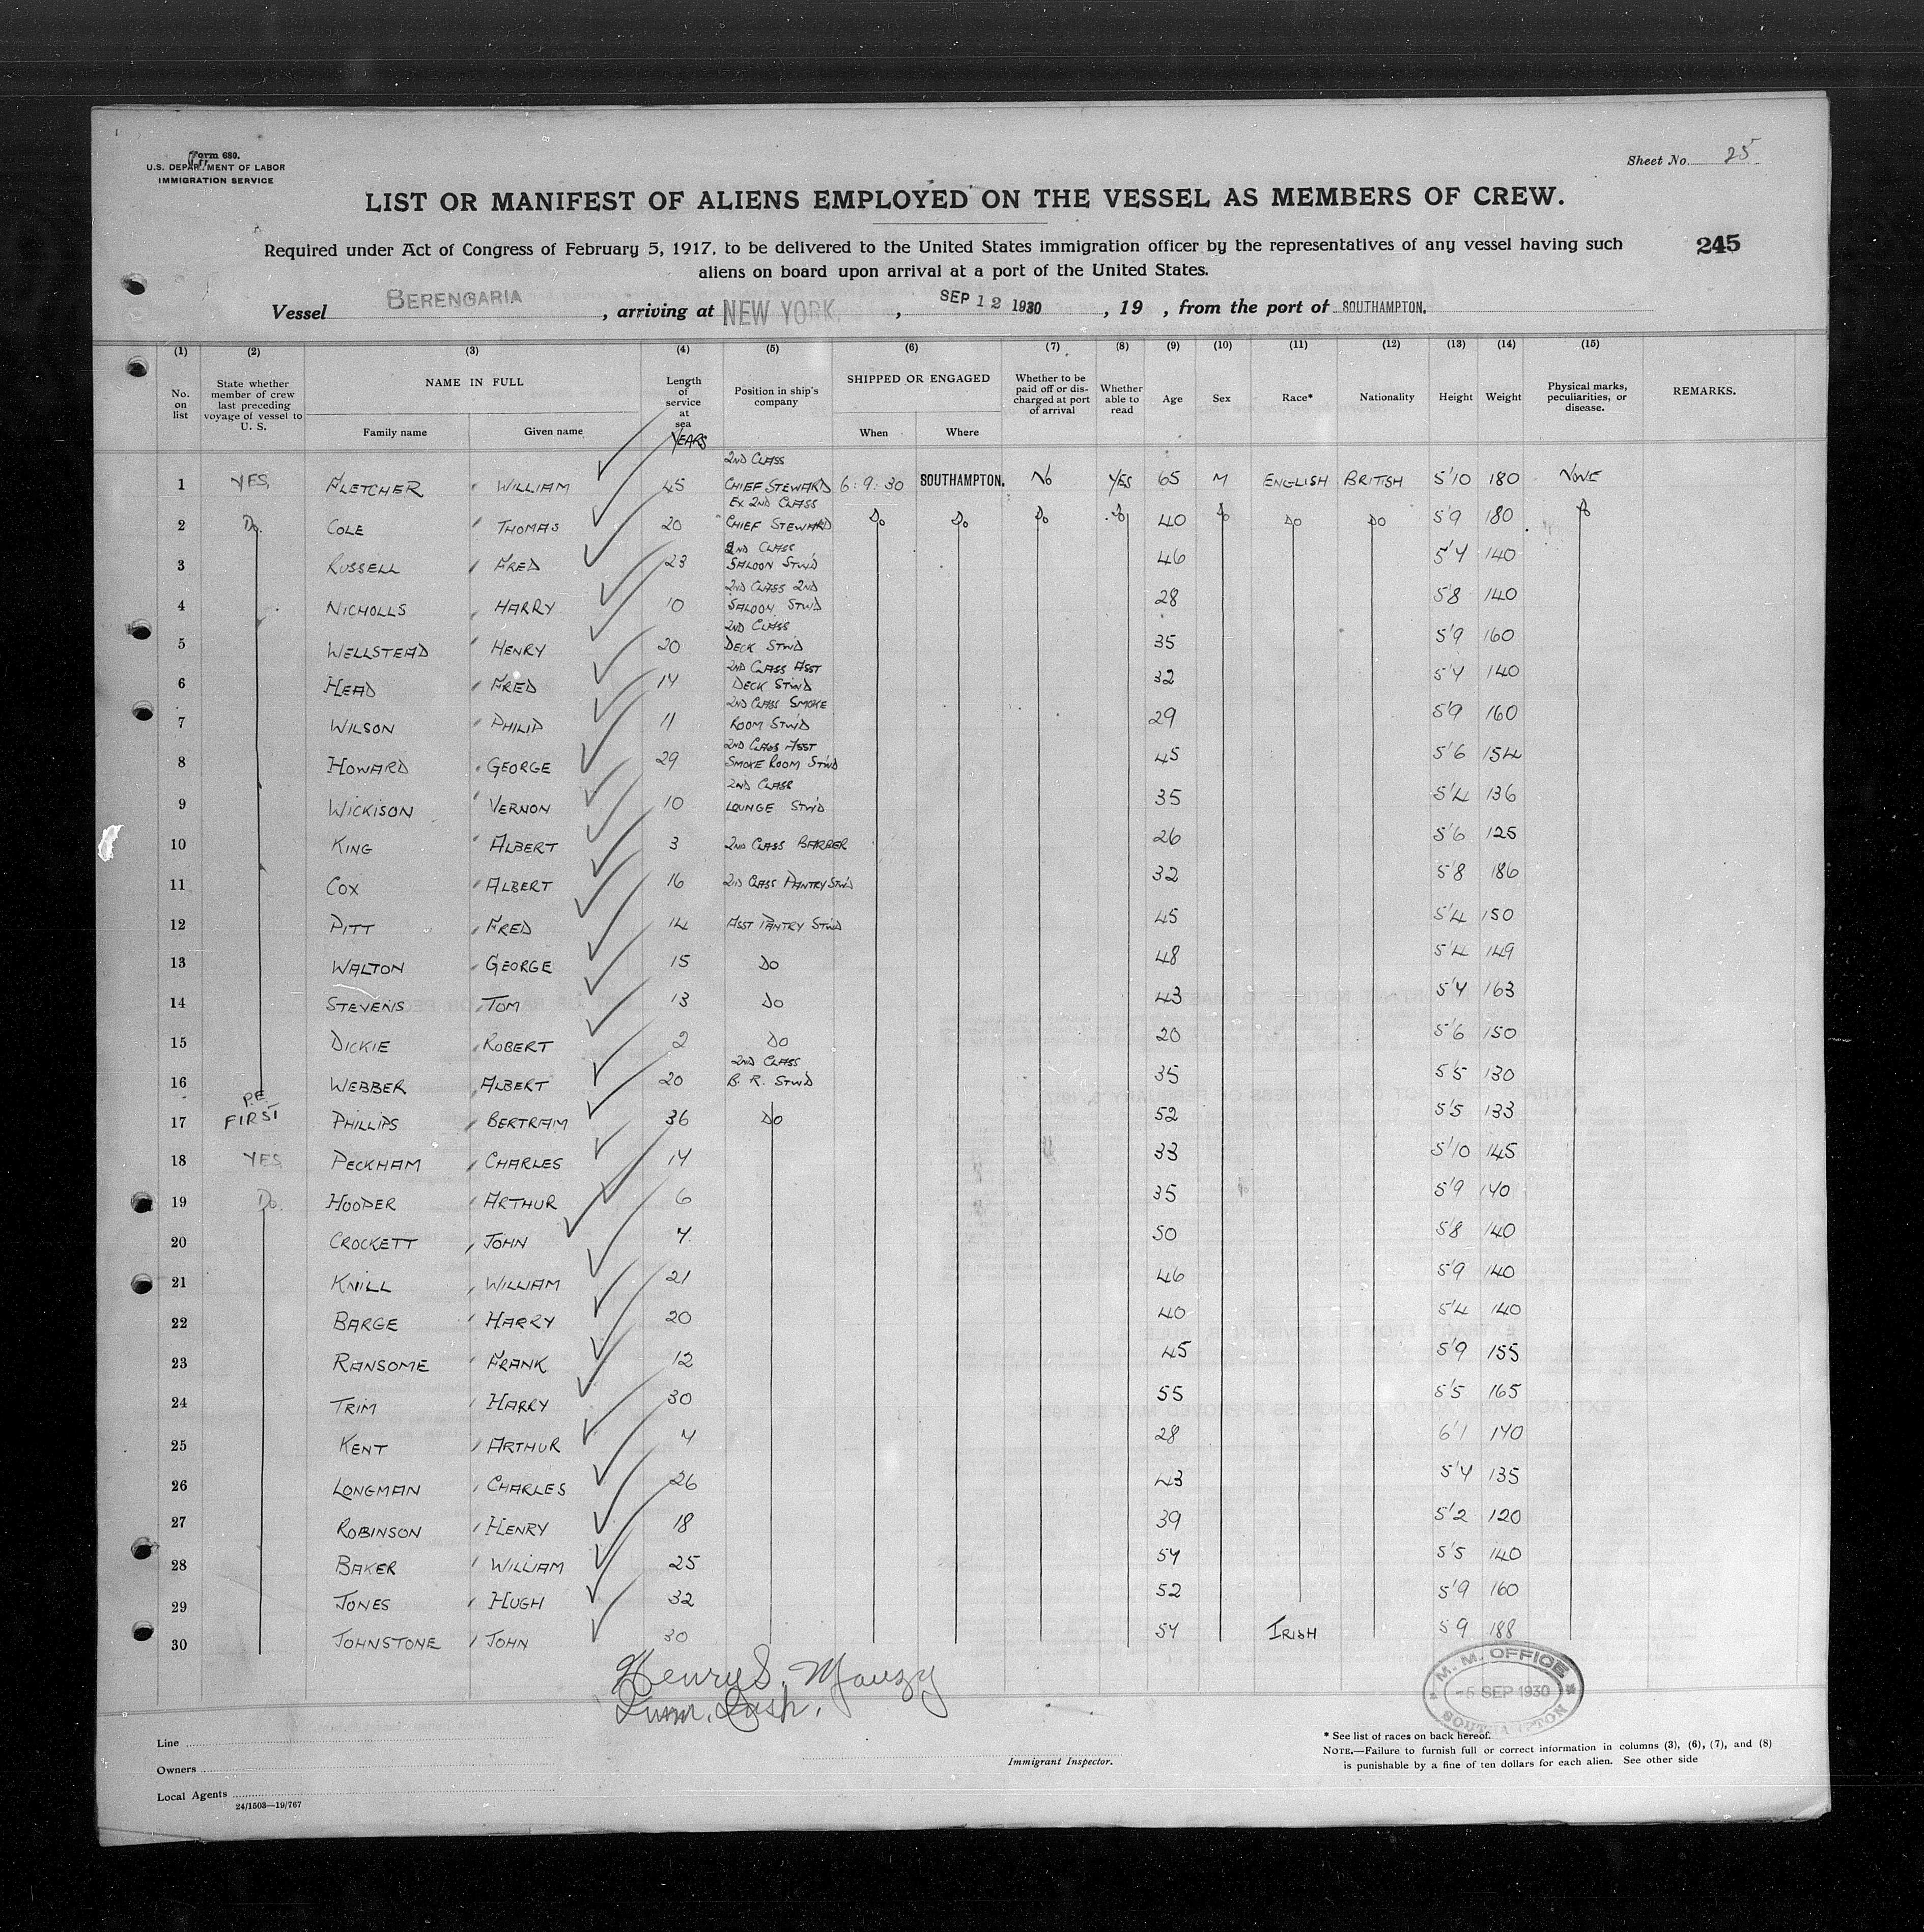 Form 680.
U.S. DEPARTMENT OF LABOR
IMMIGRATION SERVICE
Sheet No. 25
LIST OR MANIFEST OF ALIENS EMPLOYED ON THE VESSEL AS MEMBERS OF CREW.
Required under Act of Congress of February 5, 1917, to be delivered to the United States immigration officer by the representatives of any vessel having such
aliens on board upon arrival at a port of the United States.
245
Vessel BERENGARIA, arriving at NEW YORK, SEP 12 1930, 19 , from the port of SOUTHAMPTON.
(1) (2) (3) (4) (5) (6) (7) (8) (9) (10) (11) (12) (13) (14) (15)
No. on list State whether member of crew last preceding voyage of vessel to U. S. NAME IN FULL Family name Given name Length of service at sea YEARS Position in ship's company SHIPPED OR ENGAGED When Where Whether to be paid off or discharged at port of arrival Whether able to read Age Sex Race* Nationality Height Weight Physical marks, peculiarities, or disease. REMARKS.
1 YES FLETCHER WILLIAM 45 2ND CLASS CHIEF STEWARD 6:9:30 SOUTHAMPTON. NO YES 65 M ENGLISH BRITISH 5'10 180 NONE
2 Do COLE THOMAS 20 EX 2ND CLASS CHIEF STEWARD Do Do Do Do 40 Do Do Do 5'9 180 Do
3 RUSSELL FRED 23 2ND CLASS SALOON STWD 46 5'4 140
4 NICHOLLS HARRY 10 2ND CLASS 2ND SALOON STWD 28 5'8 140
5 WELLSTEAD HENRY 20 2ND CLASS DECK STWD 35 5'9 160
6 HEAD FRED 14 2ND CLASS ASST DECK STWD 32 5'4 140
7 WILSON PHILIP 11 2ND CLASS SMOKE ROOM STWD 29 5'9 160
8 HOWARD GEORGE 29 2ND CLASS ASST SMOKE ROOM STWD 45 5'6 154
9 WICKISON VERNON 10 2ND CLASS LOUNGE STWD 35 5'4 136
10 KING ALBERT 3 2ND CLASS BARBER 26 5'6 125
11 COX ALBERT 16 2ND CLASS PANTRY STWD 32 5'8 186
12 PITT FRED 14 ASST PANTRY STWD 45 5'4 150
13 WALTON GEORGE 15 DO 48 5'4 149
14 STEVENS TOM 13 DO 43 5'4 163
15 DICKIE ROBERT 2 DO 20 5'6 150
16 WEBBER ALBERT 20 2ND CLASS B. R. STWD 35 5'5 130
17 P.E. FIRST PHILLIPS BERTRAM 36 DO 52 5'5 133
18 YES PECKHAM CHARLES 14 33 5'10 145
19 Do. HOOPER ARTHUR 6 35 5'9 140
20 CROCKETT JOHN 4 50 5'8 140
21 KNILL WILLIAM 21 46 5'9 140
22 BARGE HARRY 20 40 5'4 140
23 RANSOME FRANK 12 45 5'9 155
24 TRIM HARRY 30 55 5'5 165
25 KENT ARTHUR 4 28 6'1 140
26 LONGMAN CHARLES 26 43 5'4 135
27 ROBINSON HENRY 18 39 5'2 120
28 BAKER WILLIAM 25 54 5'5 140
29 JONES HUGH 32 52 5'9 160
30 JOHNSTONE JOHN 30 54 IRISH 5 9 188
Henry S. Mauzy
M. M. OFFICE
-5 SEP 1930
SOUTHAMPTON
Line
Owners
Local Agents
24/1503—19/767
Immigrant Inspector.
* See list of races on back hereof.
NOTE.—Failure to furnish full or correct information in columns (3), (6), (7), and (8)
is punishable by a fine of ten dollars for each alien. See other side